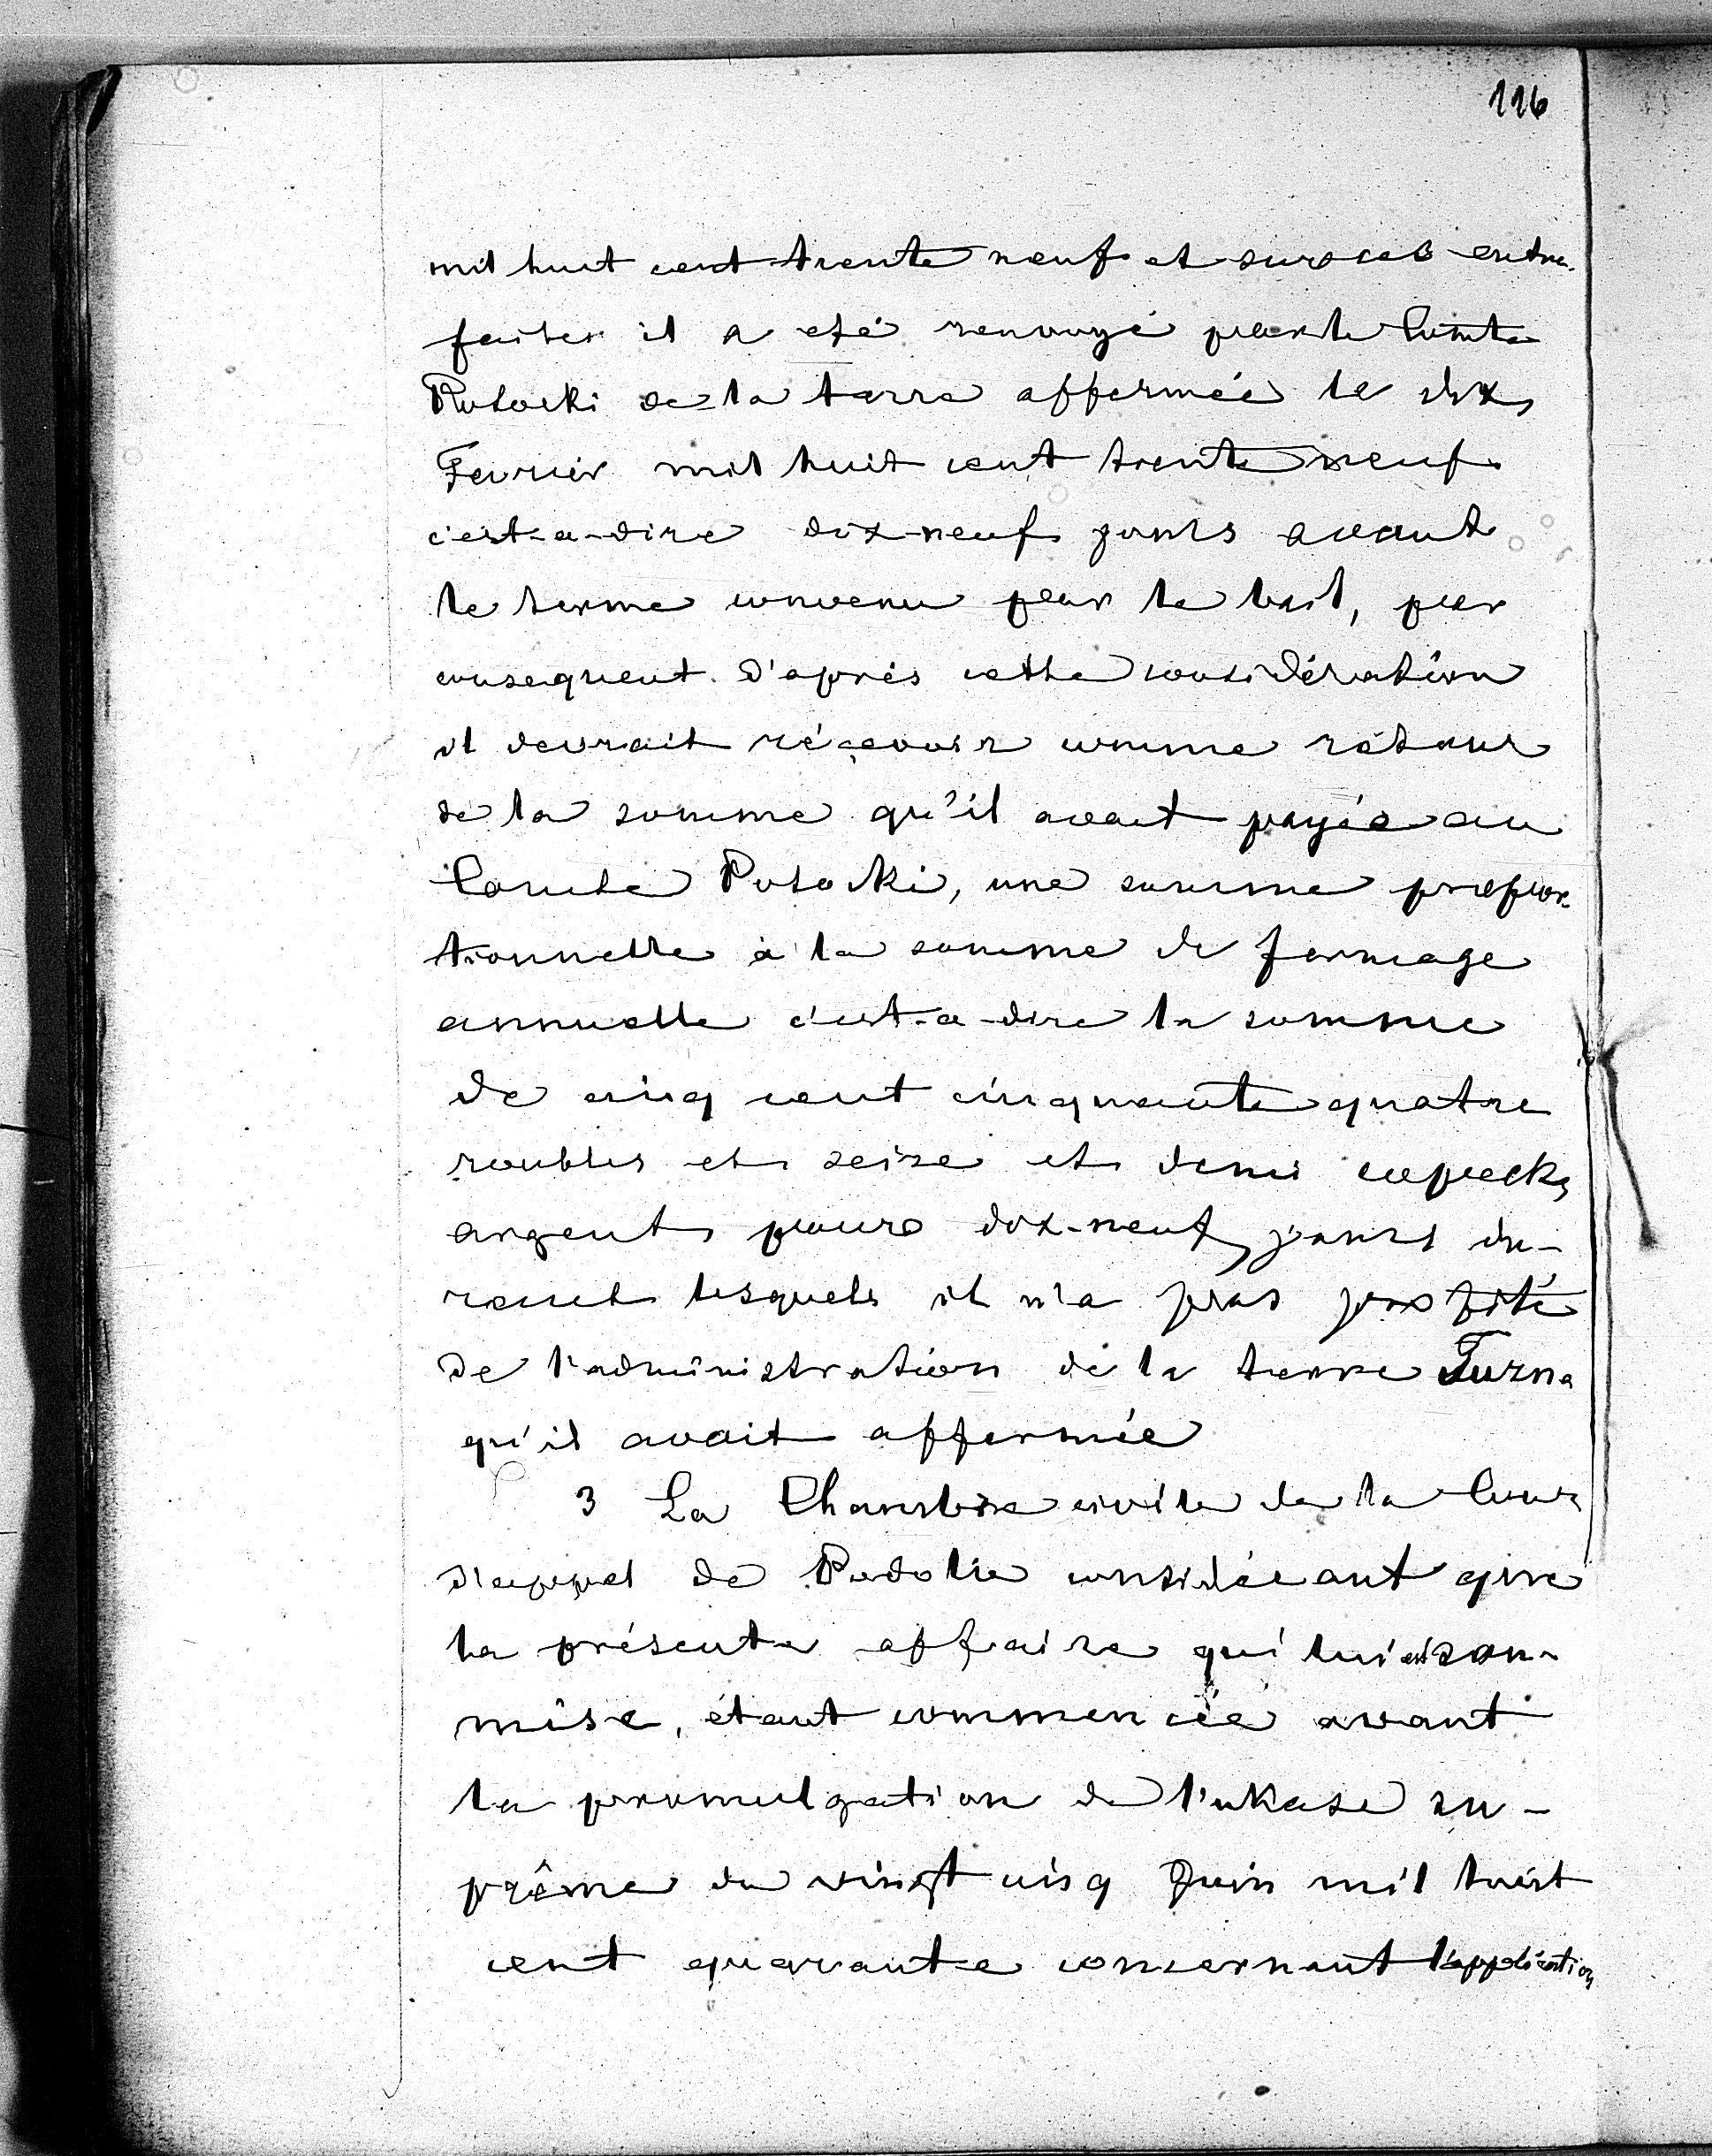 116
mil huit cent trente neuf et sur ces entre-
faites il a été renvoyé par le Comte
Potocki de la terre affermée le dix
Fevrier mil huit cent trente neuf
c'est-a-dire dix-neuf jours avant
le terme convenu pour le bail, par
consequent d'après cette considération
il devrait réçevoir comme rétour
de la somme qu'il avait payée au
Comte Potocki, une somme propor-
tionnelle à la somme de fermage
annuelle c'est-a-dire la somme
de cinq cent cinquante quatre
roubles et seize et demi copecks
argent pour dix-neuf jours du-
rant lesquels il n'a pas profité
de l'administration de la terre Turna
qu'il avait affermée
3 La Chambre civile de la Cour
d'appel de Podolie considérant que
la présente affaire qui lui est sou-
mise, étant commencée avant
la promulgation de l'ukase su-
prême du vingt cinq Juin mil huit
cent quarante concernant l'application